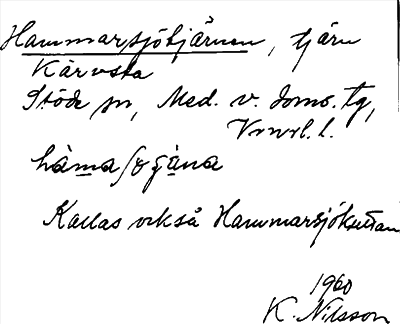 Hammarsjötjärnen, tjärn
Kärvsta
Stöde sn, Med. v. doms. tg,
Vnrl. l.
Kallas också Hammarsjökuttan
1960
K. Nilsson